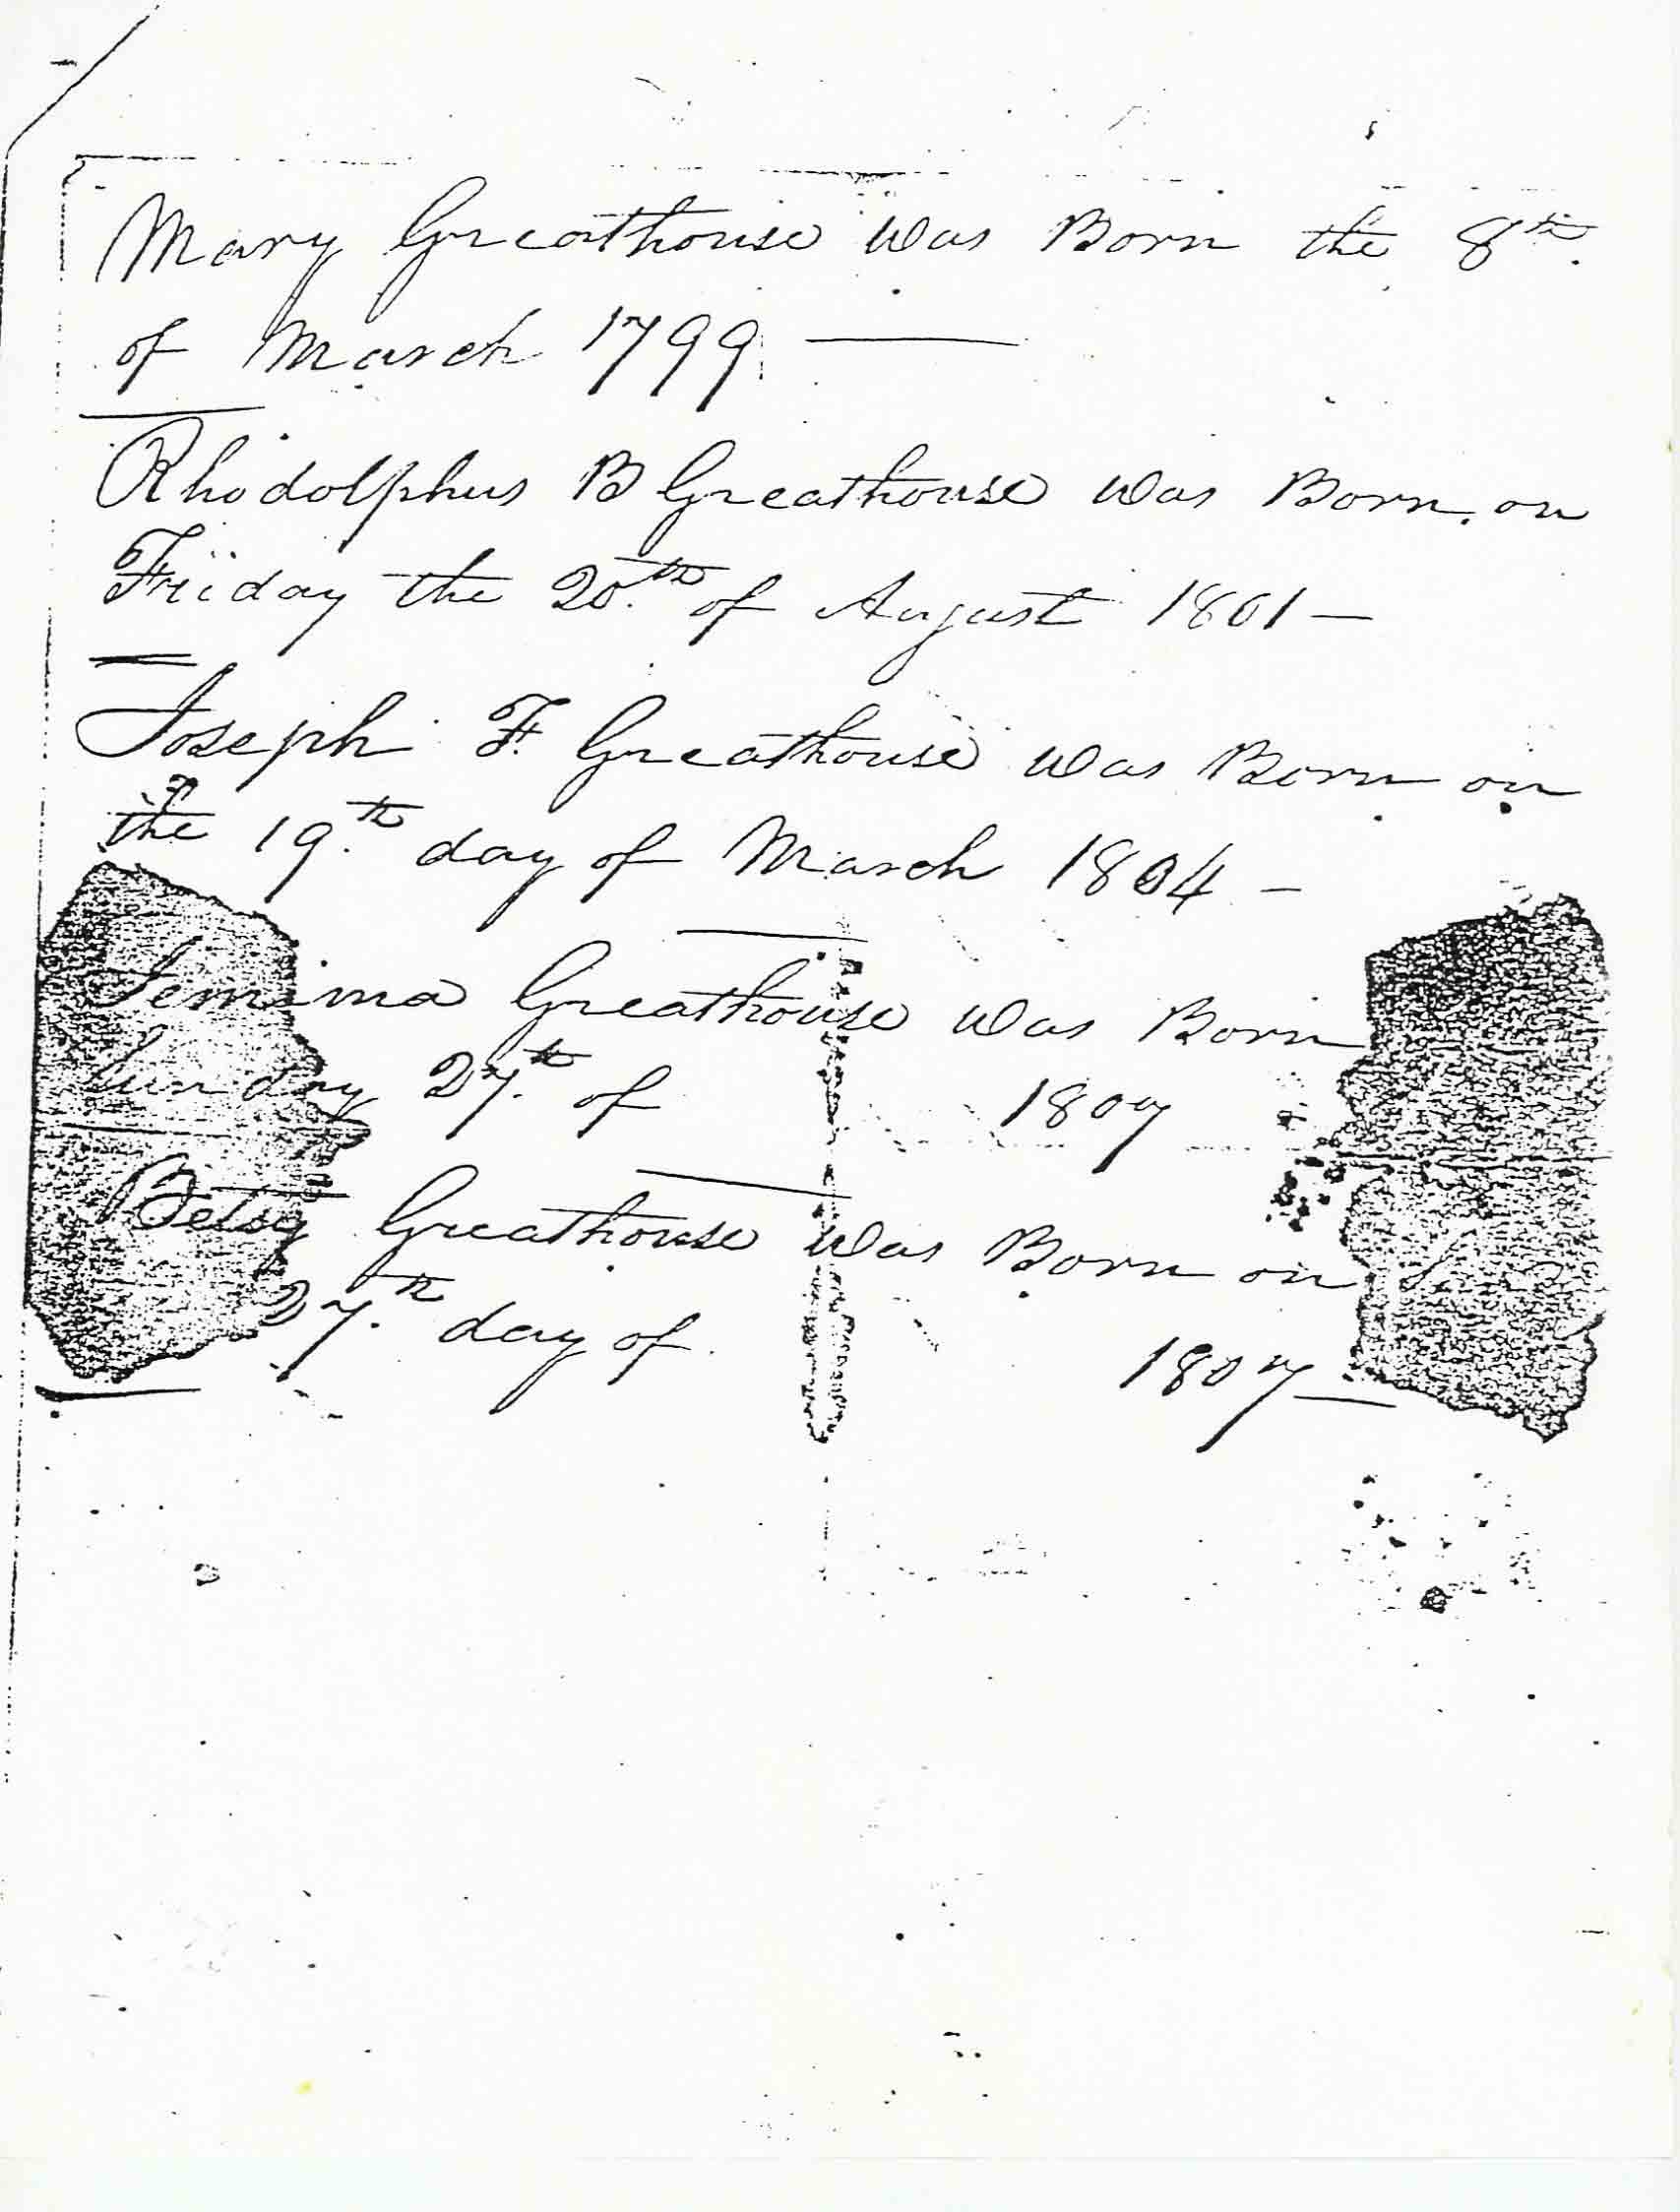 Mary Greathouse was Born the 8th.
of March 1799 —
Rhodolphus B Greathouse was Born on
Friday the 20.th of August 1801 —
Joseph F. Greathouse was Born on
the 19.th day of March 1804 —
Jemima Greathouse was Born
Sunday 27.th of 1807
Betsy Greathouse was Born on
27.th day of 1807 —